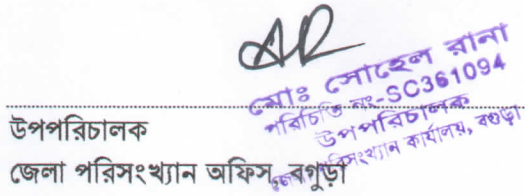 মোঃ সোহেল রানা
পরিচিতি নং-SC361094
উপপরিচালক
জেলা পরিসংখ্যান কার্যালয়, বগুড়া
উপপরিচালক
জেলা পরিসংখ্যান অফিস, বগুড়া